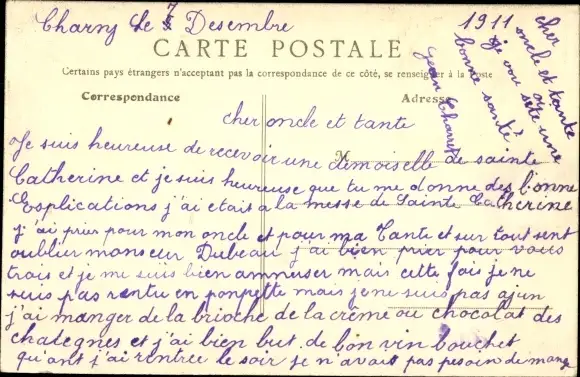 Charny le 7 Desembre 1911
CARTE POSTALE
Certains pays étrangers n'acceptent pas la correspondance de ce côté, se renseigner à la Poste
Correspondance
Adresse
M
cher oncle et tante
Je suis heureuse de recevoir une demoiselle de sainte
Catherine et je suis heureuse que tu me donne des bonne
Esplications j'ai etait a la messe de Sainte Catherine
j'ai prier pour mon oncle et pour ma Tante et sur tout sent
oublier monseur Dubeau j'ai bien prier pour vous
trois et je me suis bien ammuser mais cette fois je ne
suis pas rentu en ponpette mais je ne suis pas ajun
j'ai manger de la brioche de la crème au chocolat des
chategnes et j'ai bien but de bon vin bouchet
qu'ant j'ai rentrée le soir je n'avait pas pesoin de mange
cher
oncle et tante
je vou
une
bonne santé
Jean